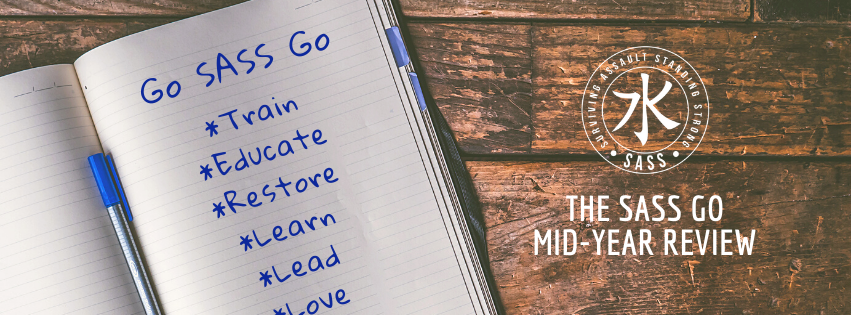 Go SASS Go
*Train
*Educate
*Restore
*Learn
*Lead
*Love
SURVIVING ASSAULT STANDING STRONG
水
• SASS •
THE SASS GO
MID-YEAR REVIEW